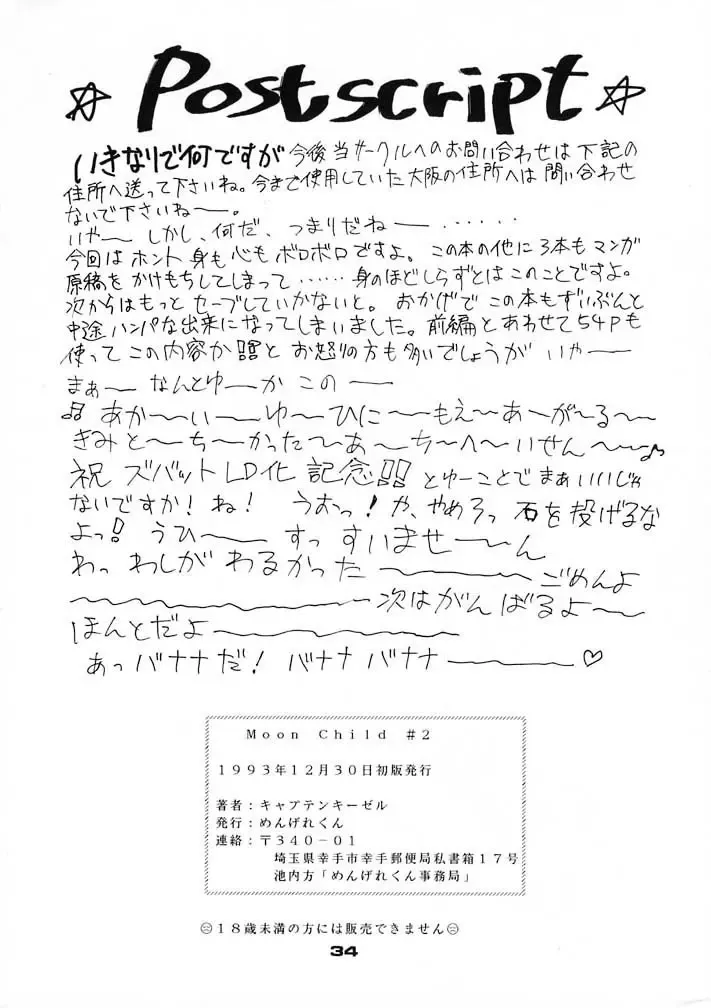 ☆ Postscript ☆
いきなりで何ですが 今後当サークルへのお問い合わせは下記の
住所へ送って下さいね。今まで使用していた大阪の住所へは問い合わせ
ないで下さいねー。
いやー しかし、何だ、つまりだねー‥‥‥
今回はホント身も心もボロボロですよ。この本の他に3本もマンガ
原稿をかけもちしてしまって‥‥‥身のほどしらずとはこのことですよ。
次からはもっとセーブしていかないと。おかげでこの本もずいぶんと
中途ハンパな出来になってしまいました。前編とあわせて54Pも
使ってこの内容か!!!とお怒りの方も多いでしょうが いやー
まぁー なんとゆーか この ー
♫ あか〜い〜ゆ〜ひに〜もえ〜あ〜が〜る〜
きみと〜ち〜かった〜あ〜ち〜へ〜いせん〜♪
祝 ズバットLD化記念!! とゆーことでまぁいいじゃ
ないですか! ね! うおっ! や、やめろっ 石を投げるな
よっ! うひ〜 すっすいませ〜ん
わっ わしが わるかった〜 ごめんよ
〜 次はがんばるよ〜
ほんとだよ〜
あっバナナだ! バナナバナナ〜♡
Moon Child #2
1993年12月30日初版発行
著者:キャプテンキーゼル
発行:めんげれくん
連絡:〒340−01
埼玉県幸手市幸手郵便局私書箱17号
池内方「めんげれくん事務局」
☹18歳未満の方には販売できません☹
34